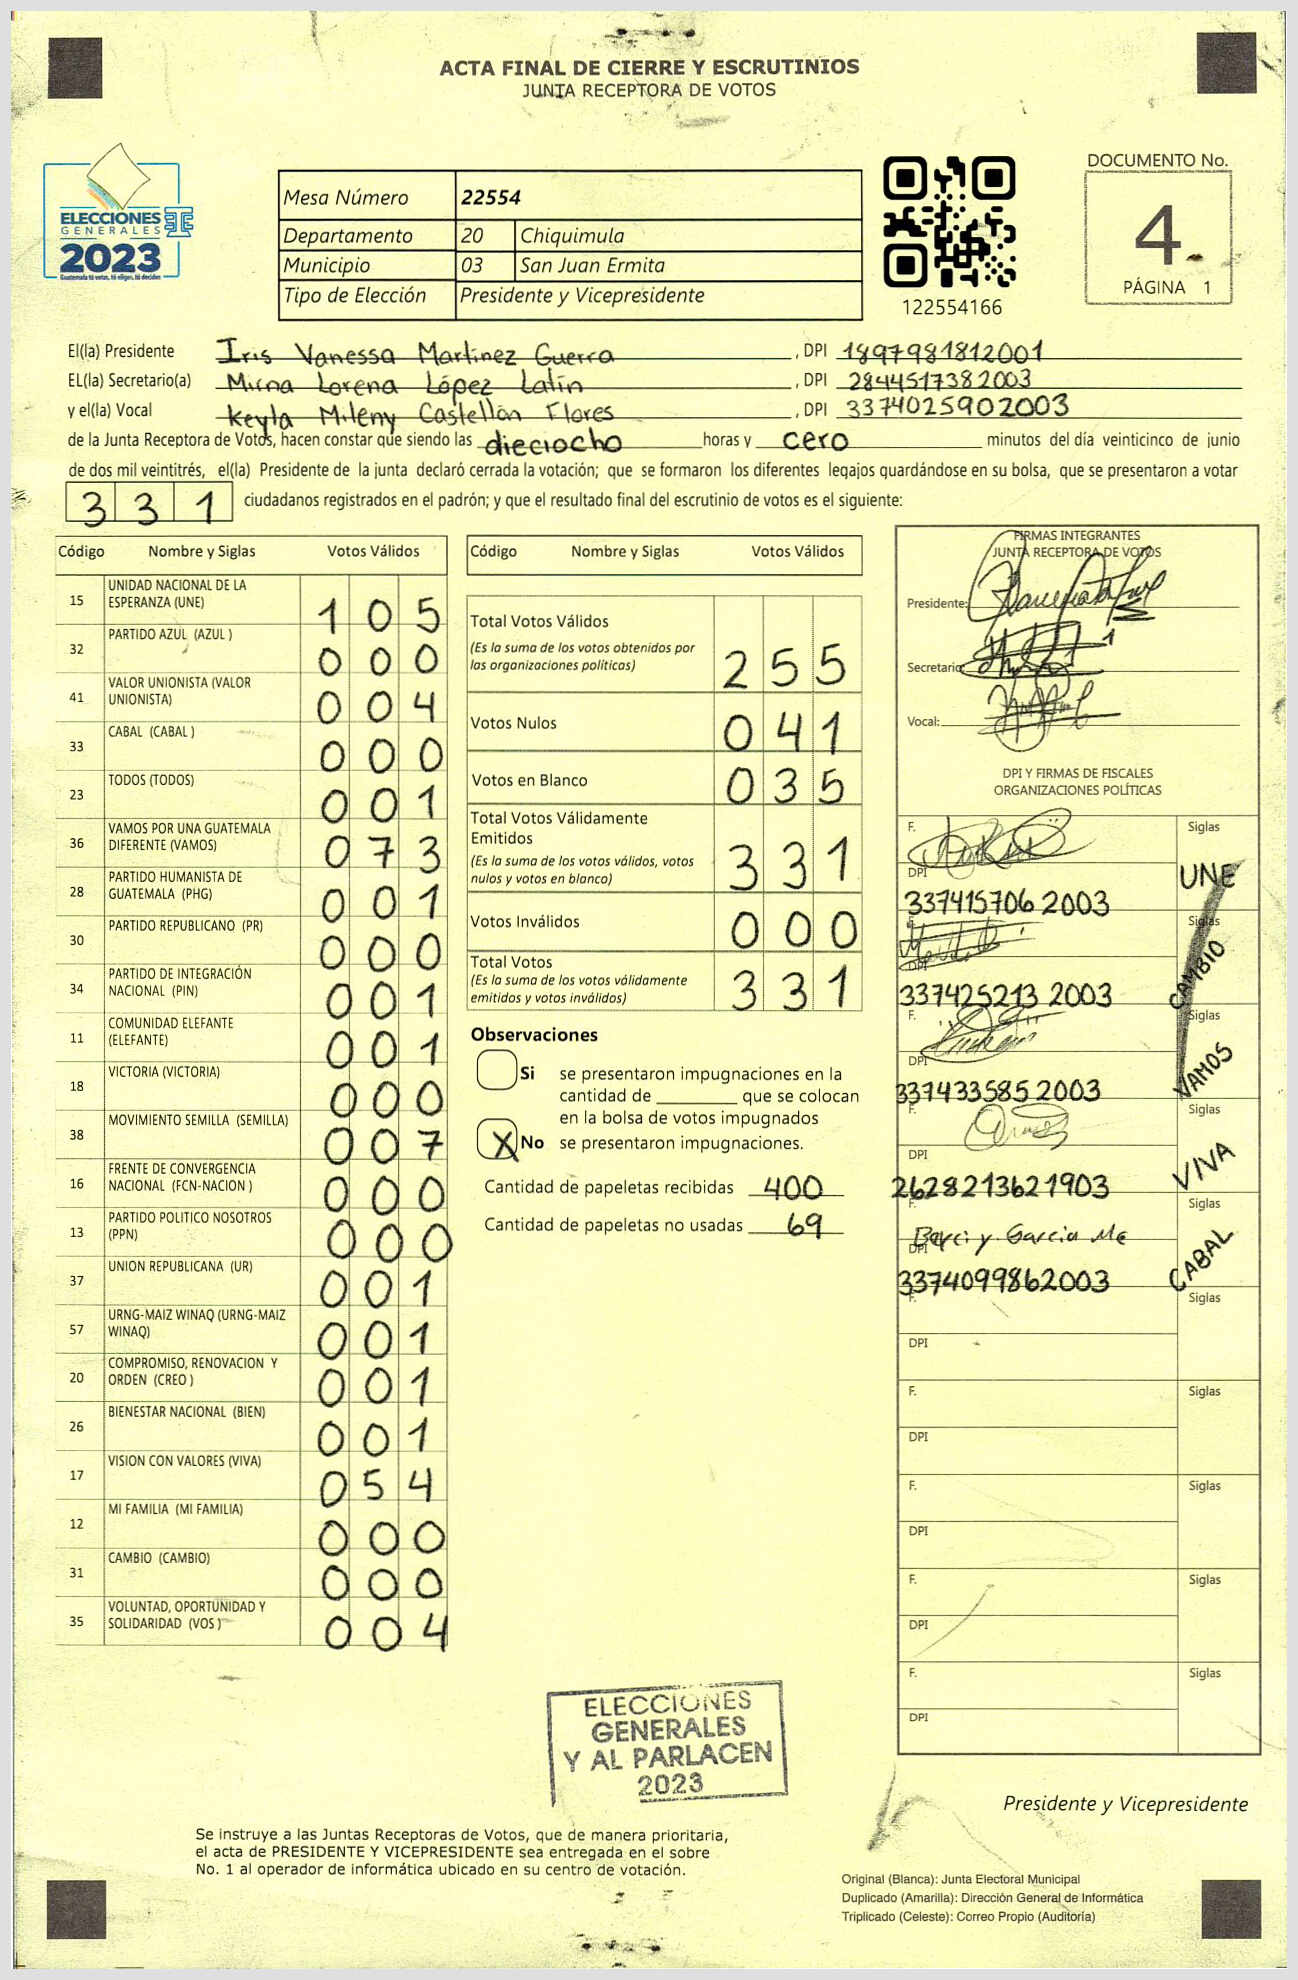 ACTA FINAL DE CIERRE Y ESCRUTINIOS
JUNTA RECEPTORA DE VOTOS
ELECCIONES
GENERALES
2023
Guatemala tú votas, tú eliges, tú decides
Mesa Número 22554
Departamento 20 Chiquimula
Municipio 03 San Juan Ermita
Tipo de Elección Presidente y Vicepresidente
122554166
DOCUMENTO No.
4
PÁGINA 1
El(la) Presidente Iris Vanessa Martinez Guerra , DPI 1897981812001
EL(la) Secretario(a) Mirna Lorena López Latín , DPI 2844517382003
y el(la) Vocal Keyla Mileny Castellón Flores , DPI 3374025902003
de la Junta Receptora de Votos, hacen constar que siendo las dieciocho horas y cero minutos del día veinticinco de junio
de dos mil veintitrés, el(la) Presidente de la junta declaró cerrada la votación; que se formaron los diferentes legajos quardándose en su bolsa, que se presentaron a votar
331 ciudadanos registrados en el padrón; y que el resultado final del escrutinio de votos es el siguiente:
Código Nombre y Siglas Votos Válidos
15 UNIDAD NACIONAL DE LA ESPERANZA (UNE) 105
32 PARTIDO AZUL (AZUL ) 000
41 VALOR UNIONISTA (VALOR UNIONISTA) 004
33 CABAL (CABAL ) 000
23 TODOS (TODOS) 001
36 VAMOS POR UNA GUATEMALA DIFERENTE (VAMOS) 073
28 PARTIDO HUMANISTA DE GUATEMALA (PHG) 001
30 PARTIDO REPUBLICANO (PR) 000
34 PARTIDO DE INTEGRACIÓN NACIONAL (PIN) 001
11 COMUNIDAD ELEFANTE (ELEFANTE) 001
18 VICTORIA (VICTORIA) 000
38 MOVIMIENTO SEMILLA (SEMILLA) 007
16 FRENTE DE CONVERGENCIA NACIONAL (FCN-NACION ) 000
13 PARTIDO POLITICO NOSOTROS (PPN) 000
37 UNION REPUBLICANA (UR) 001
57 URNG-MAIZ WINAQ (URNG-MAIZ WINAQ) 001
20 COMPROMISO, RENOVACION Y ORDEN (CREO ) 001
26 BIENESTAR NACIONAL (BIEN) 001
17 VISION CON VALORES (VIVA) 054
12 MI FAMILIA (MI FAMILIA) 000
31 CAMBIO (CAMBIO) 000
35 VOLUNTAD, OPORTUNIDAD Y SOLIDARIDAD (VOS ) 004
Código Nombre y Siglas Votos Válidos
Total Votos Válidos
(Es la suma de los votos obtenidos por
las organizaciones políticas) 255
Votos Nulos 041
Votos en Blanco 035
Total Votos Válidamente
Emitidos
(Es la suma de los votos válidos, votos
nulos y votos en blanco) 331
Votos Inválidos 000
Total Votos
(Es la suma de los votos válidamente
emitidos y votos inválidos) 331
Observaciones
Si se presentaron impugnaciones en la
cantidad de ________ que se colocan
en la bolsa de votos impugnados
X No se presentaron impugnaciones.
Cantidad de papeletas recibidas 400
Cantidad de papeletas no usadas 69
FIRMAS INTEGRANTES
JUNTA RECEPTORA DE VOTOS
Presidente:
Secretario:
Vocal:
DPI Y FIRMAS DE FISCALES
ORGANIZACIONES POLÍTICAS
F. Siglas
DPI UNE
337415706 2003
F. Siglas
DPI CAMBIO
337425213 2003
F. Siglas
DPI VAMOS
337433585 2003
F. Siglas
DPI VIVA
2628213621903
F. Garcia Siglas
DPI CABAL
3374099862003
F. Siglas
DPI
F. Siglas
DPI
F. Siglas
DPI
F. Siglas
DPI
F. Siglas
DPI
ELECCIONES
GENERALES
Y AL PARLACEN
2023
Presidente y Vicepresidente
Se instruye a las Juntas Receptoras de Votos, que de manera prioritaria,
el acta de PRESIDENTE Y VICEPRESIDENTE sea entregada en el sobre
No. 1 al operador de informática ubicado en su centro de votación.
Original (Blanca): Junta Electoral Municipal
Duplicado (Amarilla): Dirección General de Informática
Triplicado (Celeste): Correo Propio (Auditoría)